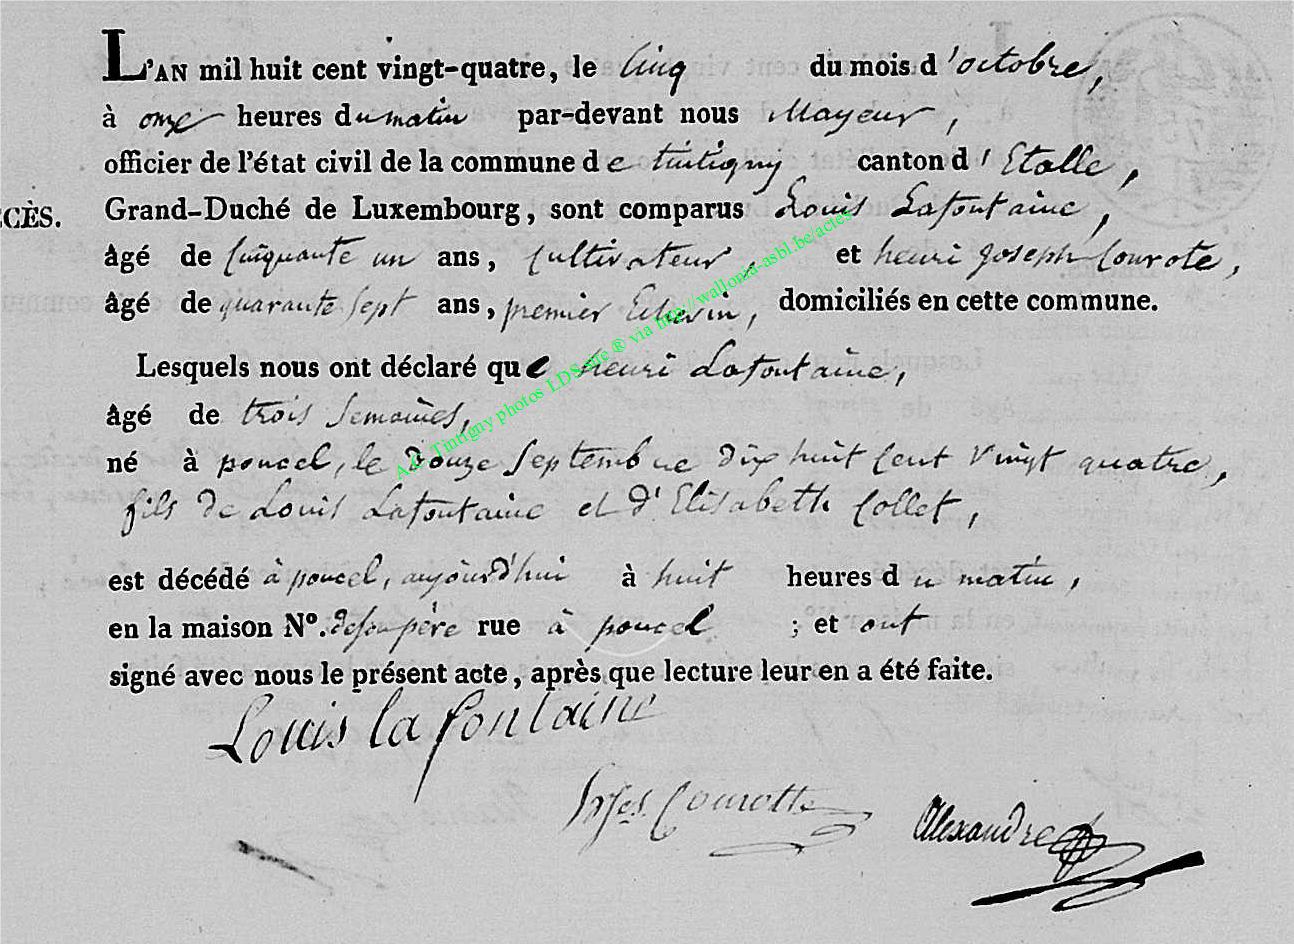 L'AN mil huit cent vingt-quatre, le Cinq du mois d'octobre,
à onze heures du matin par-devant nous Mayeur,
officier de l'état civil de la commune de tintigny canton d'Etalle,
CÈS. Grand-Duché de Luxembourg, sont comparus Louis Lafontaine,
âgé de Cinquante un ans, Cultivateur, et henri Joseph Courote,
âgé de quarante sept ans, premier Echevin, domiciliés en cette commune.
Lesquels nous ont déclaré que henri Lafontaine,
âgé de trois Semaines,
né à poncel, le douze Septembre dix huit Cent vingt quatre,
fils de Louis Lafontaine et d'Elisabeth Collet,
est décédé à poncel, aujourd'hui à huit heures du matin,
en la maison Nº. de son père rue à poncel ; et ont
signé avec nous le présent acte, après que lecture leur en a été faite.
Louis lafontaine
Courotte
Alexandre
A.C. Tintigny photos LDS site ® via http://wallonia-asbl.be/actes